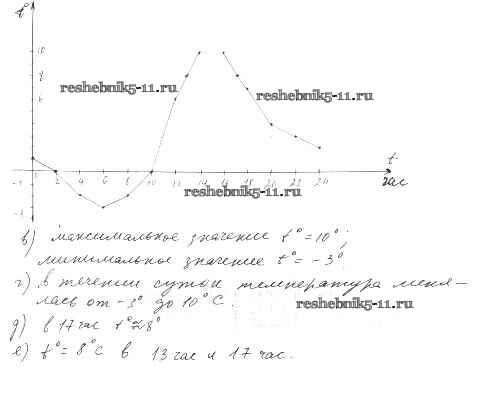 t°
10
8
6
reshebnik5-11.ru
reshebnik5-11.ru
t
час
0 2 4 6 8 10 12 14 16 18 20 22 24
reshebnik5-11.ru
в) максимальное значение t°=10°;
минимальное значение t°= -3°
г) в течении суток температура меня-
лась от -3° до 10°С.
reshebnik5-11.ru
д) в 17 час t°≈8°
е) t°= 8°С в 13 час и 17 час.